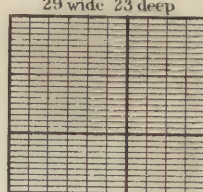 29 wide 23 deep